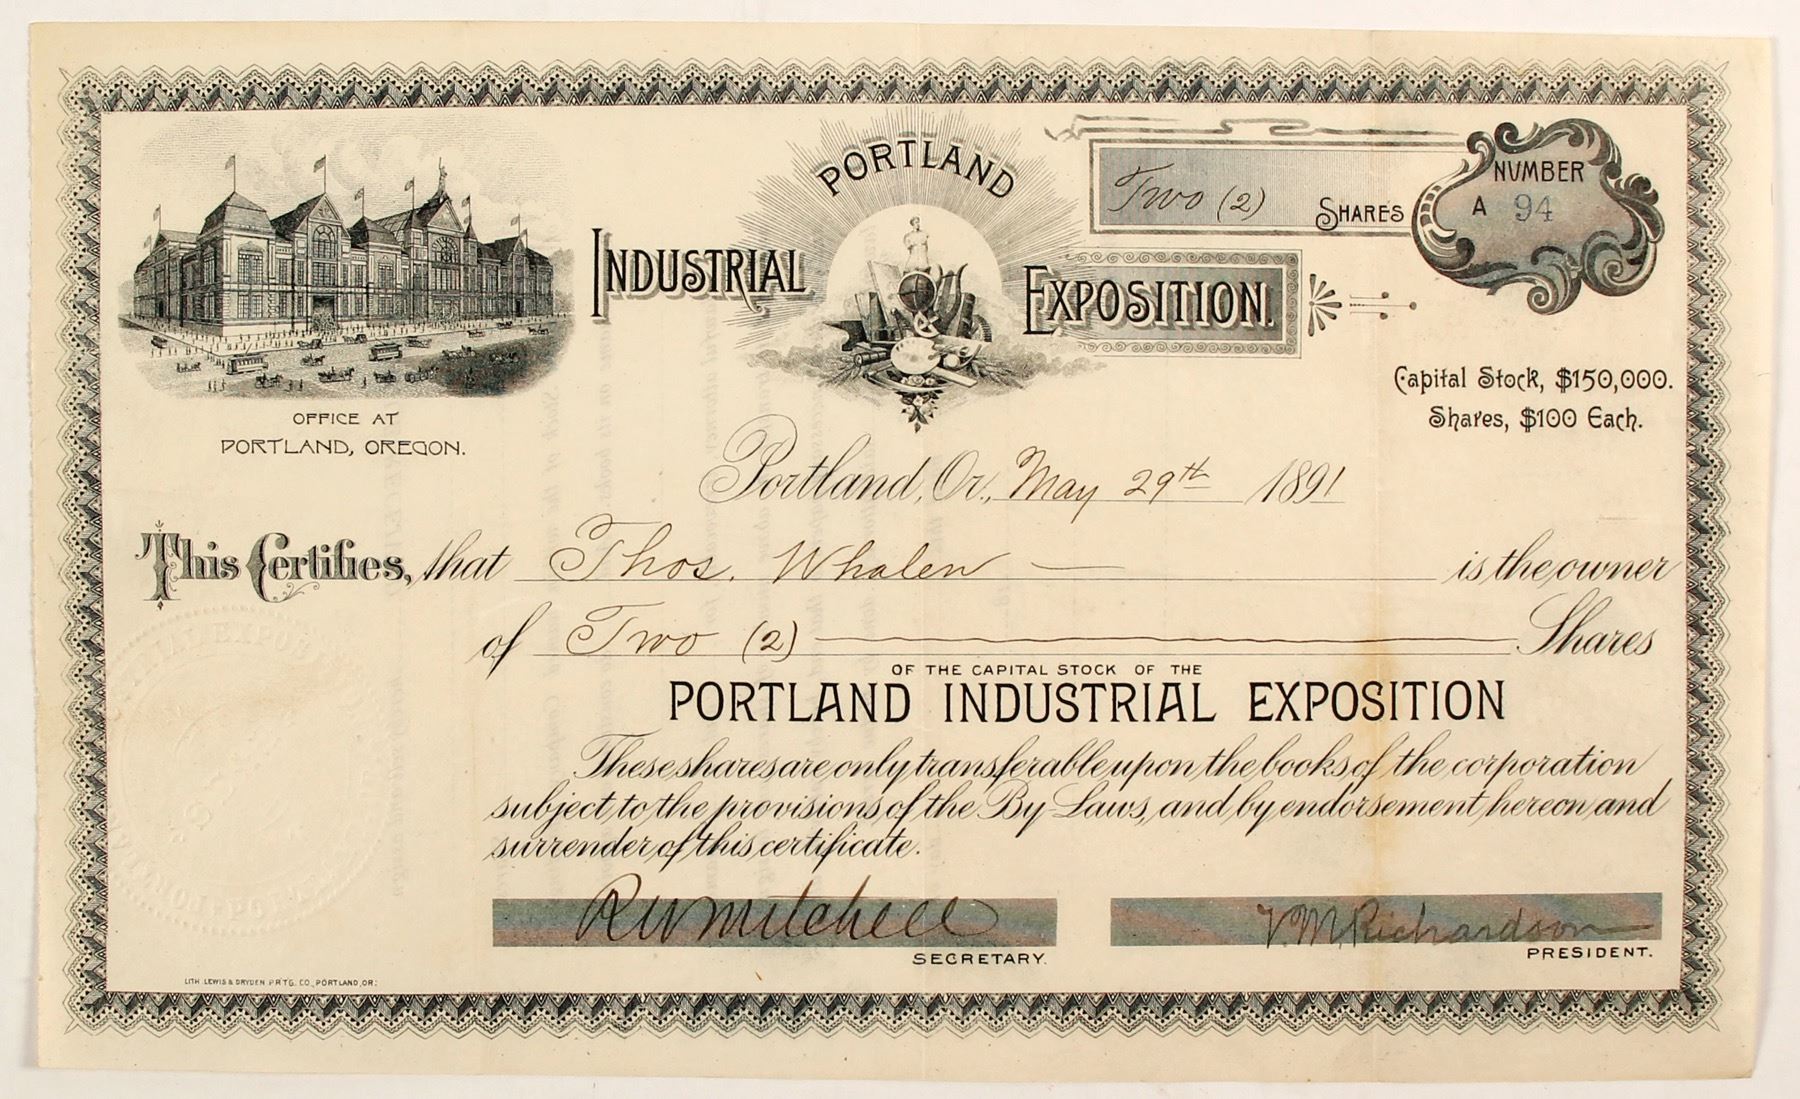 PORTLAND
INDUSTRIAL EXPOSITION.
Two (2) SHARES
NUMBER
A 94
OFFICE AT
PORTLAND, OREGON.
Capital Stock, $150,000.
Shares, $100 Each.
Portland, Or., May 29th 1891
This Certifies, that Thos. Whalen is the owner
of Two (2) Shares
OF THE CAPITAL STOCK OF THE
PORTLAND INDUSTRIAL EXPOSITION
These shares are only transferable upon the books of the corporation
subject to the provisions of the By-Laws, and by endorsement hereon and
surrender of this certificate.
RW Mitchell
SECRETARY.
V. M. Richardson
PRESIDENT.
LITH. LEWIS & DRYDEN PR'T'G. CO., PORTLAND, OR.